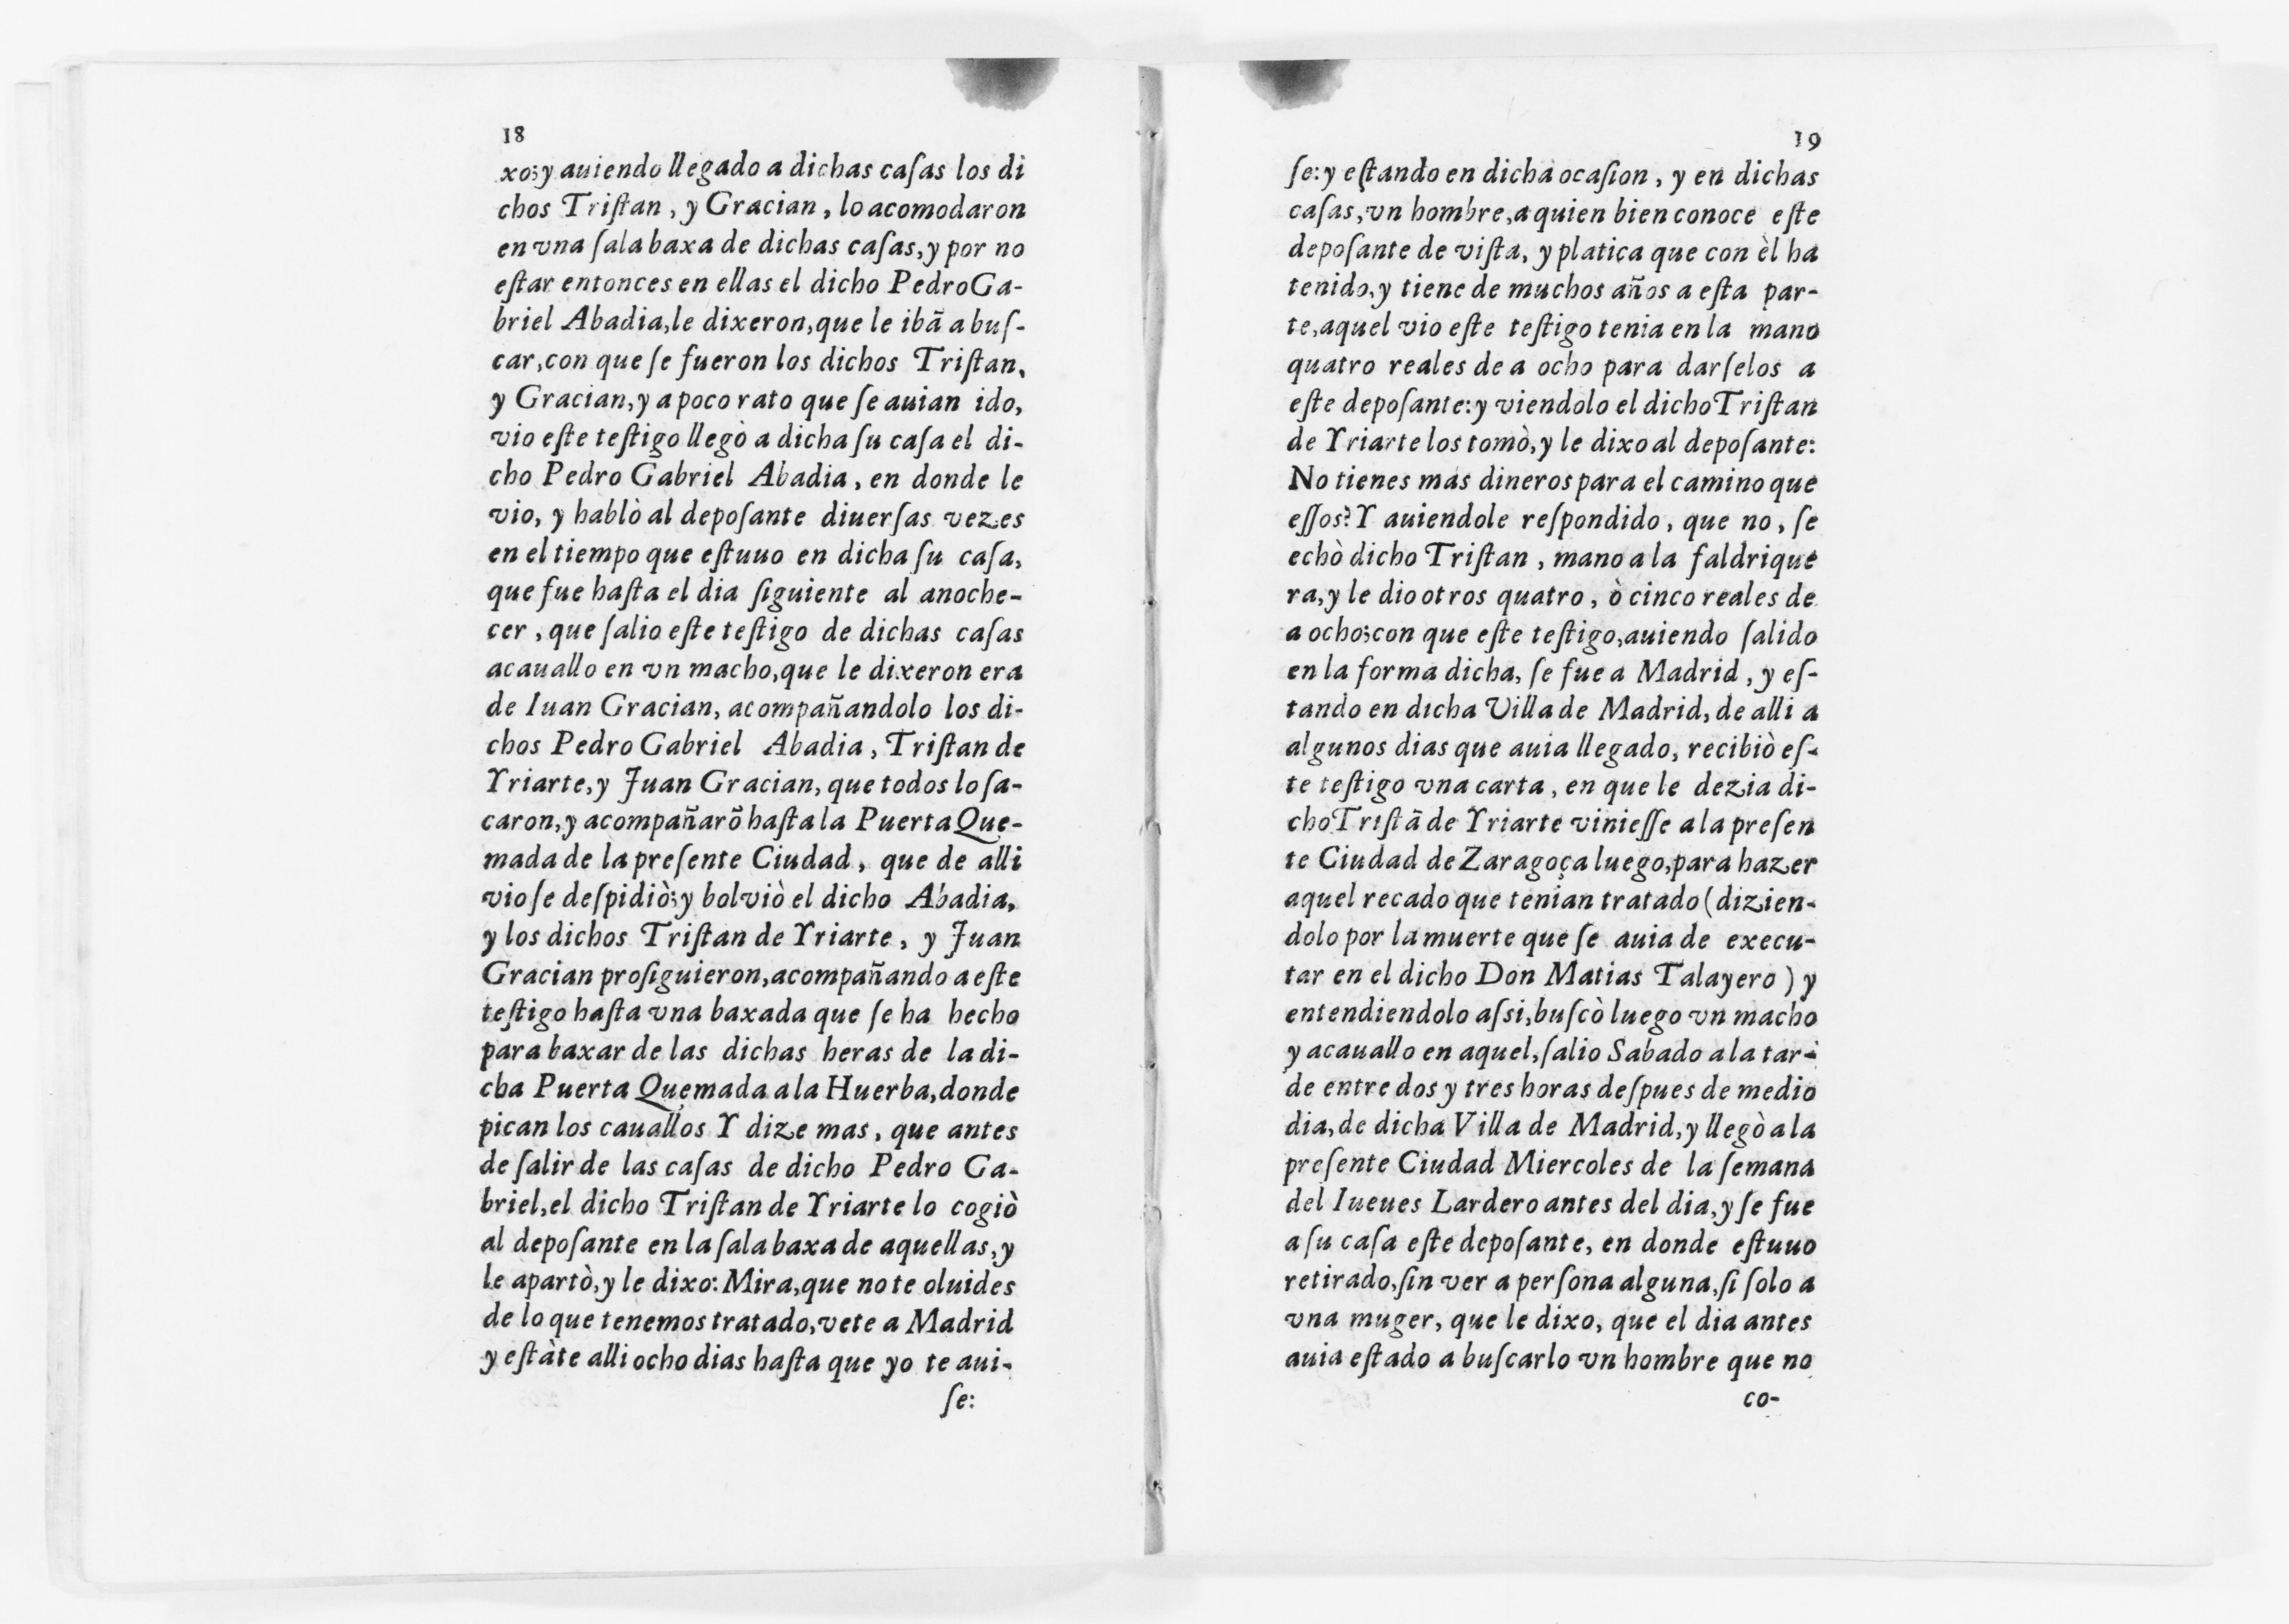 18
xo; y auiendo llegado a dichas casas los di
chos Tristan, y Gracian, lo acomodaron
en vna sala baxa de dichas casas, y por no
estar entonces en ellas el dicho Pedro Ga-
briel Abadia, le dixeron, que le ibã a bus-
car, con que se fueron los dichos Tristan,
y Gracian, y a poco rato que se auian ido,
vio este testigo llegò a dicha su casa el di-
cho Pedro Gabriel Abadia, en donde le
vio, y hablò al deposante diuersas vezes
en el tiempo que estuuo en dicha su casa,
que fue hasta el dia siguiente al anoche-
cer, que salio este testigo de dichas casas
acauallo en vn macho, que le dixeron era
de Iuan Gracian, acompañandolo los di-
chos Pedro Gabriel Abadia, Tristan de
Yriarte, y Juan Gracian, que todos lo sa-
caron, y acompañarõ hasta la Puerta Que-
mada de la presente Ciudad, que de alli
vio se despidiò; y bolviò el dicho Abadia,
y los dichos Tristan de Yriarte, y Juan
Gracian prosiguieron, acompañando a este
testigo hasta vna baxada que se ha hecho
para baxar de las dichas heras de la di-
cha Puerta Quemada a la Huerba, donde
pican los cauallos Y dize mas, que antes
de salir de las casas de dicho Pedro Ga-
briel, el dicho Tristan de Yriarte lo cogiò
al deposante en la sala baxa de aquellas, y
le apartò, y le dixo: Mira, que no te oluides
de lo que tenemos tratado, vete a Madrid
y estàte alli ocho dias hasta que yo te aui-
se:
19
se: y estando en dicha ocasion, y en dichas
casas, vn hombre, a quien bien conoce este
deposante de vista, y platica que con èl ha
tenido, y tiene de muchos años a esta par-
te, aquel vio este testigo tenia en la mano
quatro reales de a ocho para darselos a
este deposante: y viendolo el dicho Tristan
de Yriarte los tomò, y le dixo al deposante:
No tienes mas dineros para el camino que
essos? Y auiendole respondido, que no, se
echò dicho Tristan, mano a la faldrique
ra, y le dio otros quatro, ò cinco reales de
a ocho; con que este testigo, auiendo salido
en la forma dicha, se fue a Madrid, y es-
tando en dicha Villa de Madrid, de alli a
algunos dias que auia llegado, recibiò es-
te testigo vna carta, en que le dezia di-
cho Tristã de Yriarte viniesse a la presen
te Ciudad de Zaragoça luego, para hazer
aquel recado que tenian tratado (dizien-
dolo por la muerte que se auia de execu-
tar en el dicho Don Matias Talayero) y
entendiendolo assi, buscò luego vn macho
y acauallo en aquel, salio Sabado a la tar-
de entre dos y tres horas despues de medio
dia, de dicha Villa de Madrid, y llegò a la
presente Ciudad Miercoles de la semana
del Iueues Lardero antes del dia, y se fue
a su casa este deposante, en donde estuuo
retirado, sin ver a persona alguna, si solo a
vna muger, que le dixo, que el dia antes
auia estado a buscarlo vn hombre que no
co-